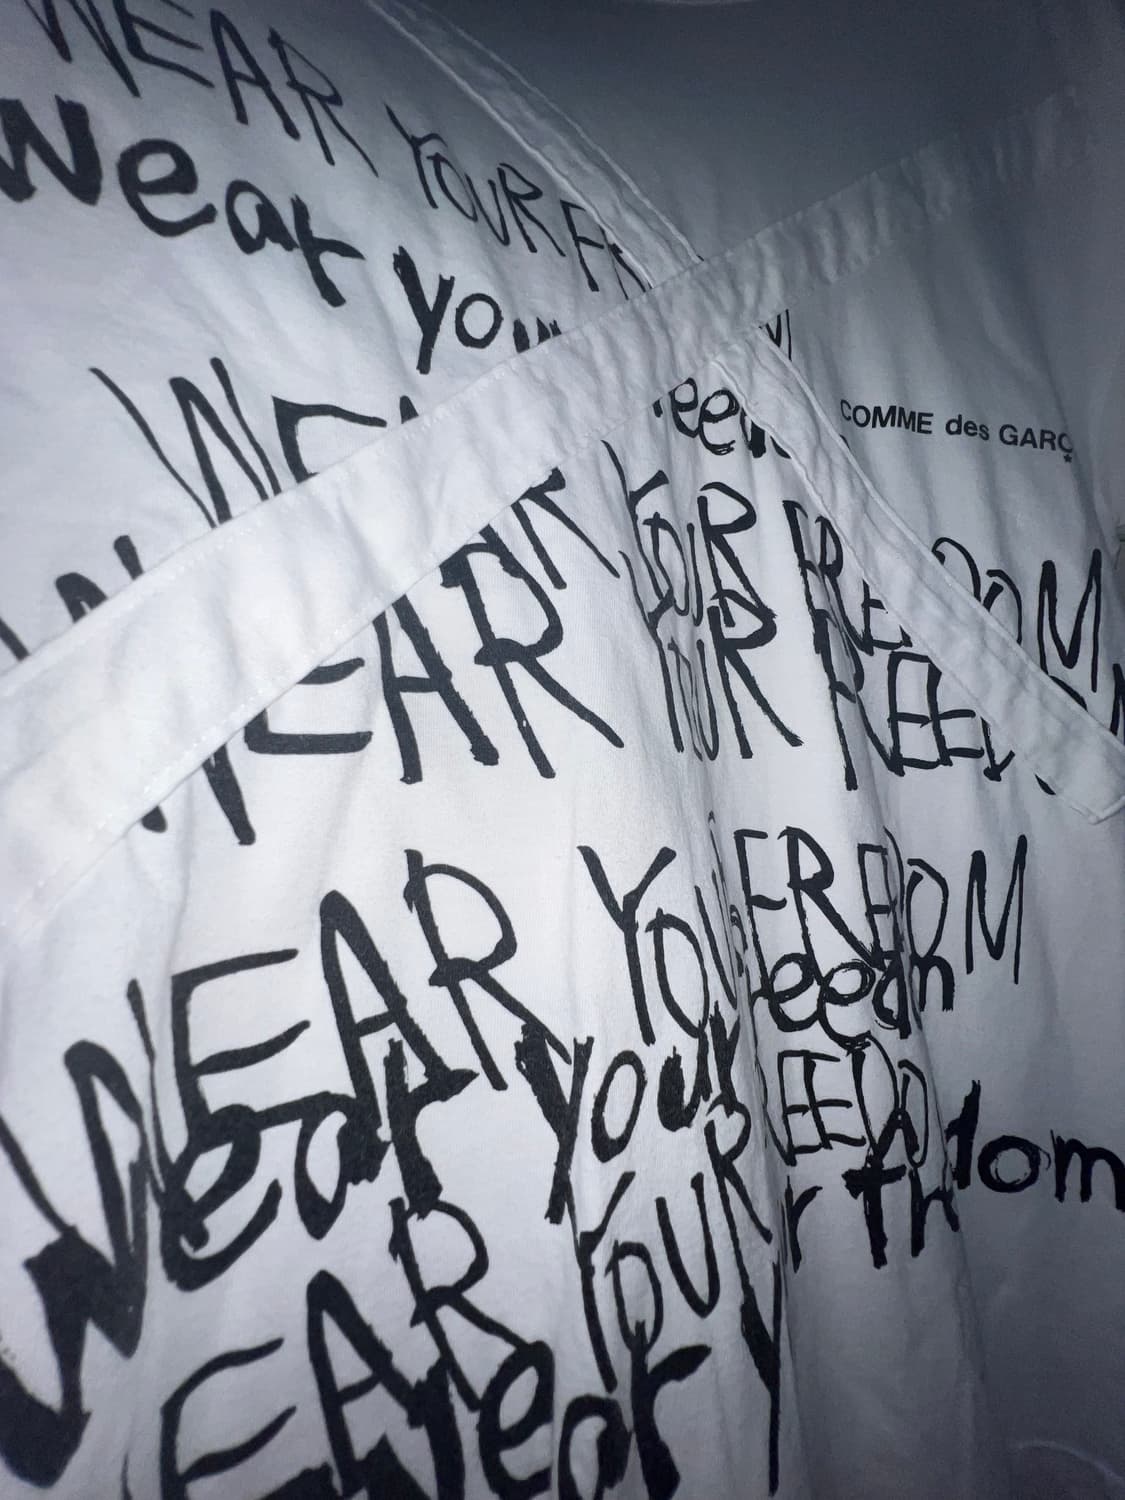 WEAR YOUR FR
wear you
WEA
eed
COMME des GARÇ
WEAR YOUR FREEDOM
WEAR YOUR FREED
WEAR YOUR FREEDOM
wear your freedom
EAR YOUR REEDO
wear